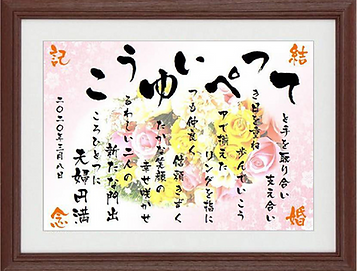 結婚
記念
てっぺいゆうこ
と手を取り合い
支え合い
き日を重ね
歩んでいこう
アで揃えた
リングを指に
つも仲良く
信頼きずく
たかな笑顔の
幸せ咲かせ
るわしい二人の
新たな門出
ころひとつに
夫婦円満
二〇二〇年三月八日